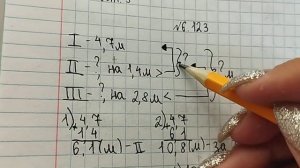 №6.123
I - 4,7м
II - ?, на 1,4м > ?
III - ?, на 2,8м < ?м
1) + 4,7 2) + 4,7
1 4 6,1
6,1(м) - II 10,8(м) - за